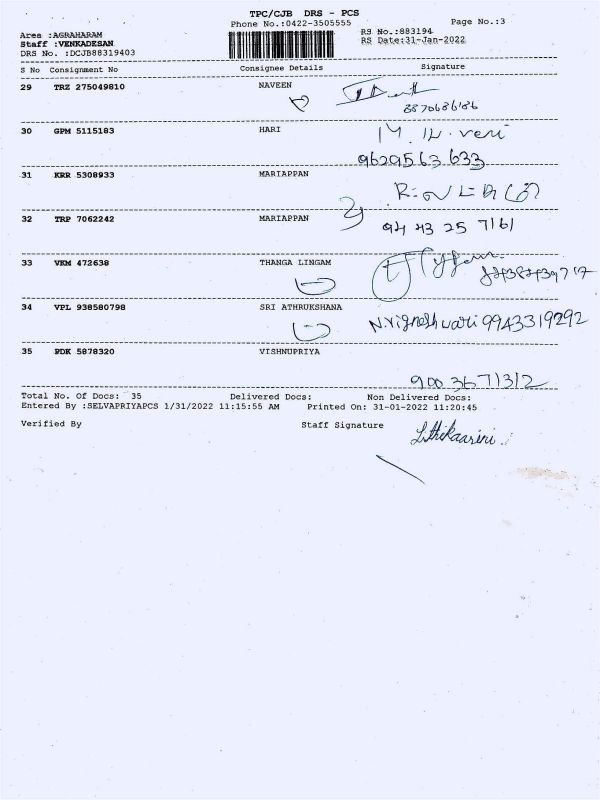 TPC/CJB DRS - PCS
Phone No.:0422-3505555 Page No.:3
Area :AGRAHARAM RS No.:883194
Staff :VENKADESAN RS Date:31-Jan-2022
DRS No. :DCJB88319403
S No Consignment No Consignee Details Signature
29 TRZ 275049810 NAVEEN
30 GPM 5115183 HARI
9629563633
31 KRR 5308933 MARIAPPAN
32 TRP 7062242 MARIAPPAN
94 43 25 7161
33 VKM 472638 THANGA LINGAM
34 VPL 938580798 SRI ATHRUKSHANA
N.Vigneshwari 9943319292
35 PDK 5878320 VISHNUPRIYA
9003671312
Total No. Of Docs: 35 Delivered Docs: Non Delivered Docs:
Entered By :SELVAPRIYAPCS 1/31/2022 11:15:55 AM Printed On: 31-01-2022 11:20:45
Verified By Staff Signature